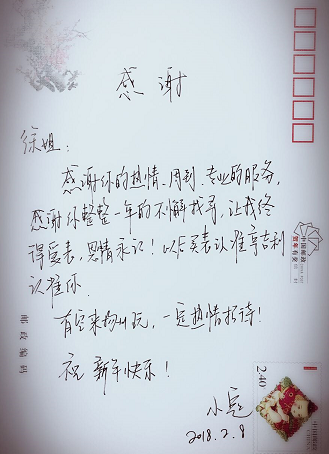 感谢
徐姐：
感谢你的热情、周到、专业的服务，
感谢你整整一年的不懈找寻，让我终
得爱表，恩情永记！以后买表认准亨吉利
认准你.
有空来扬州玩，一定热情招待！
祝 新年快乐！
小
2018.2.8
中国邮政
贺年有奖
邮政编码
2.40